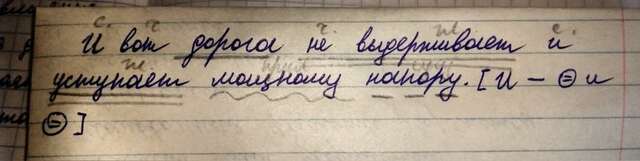 И вот дорога не выдерживает и
уступает мощному напору. [И – ⊜ и
⊜]